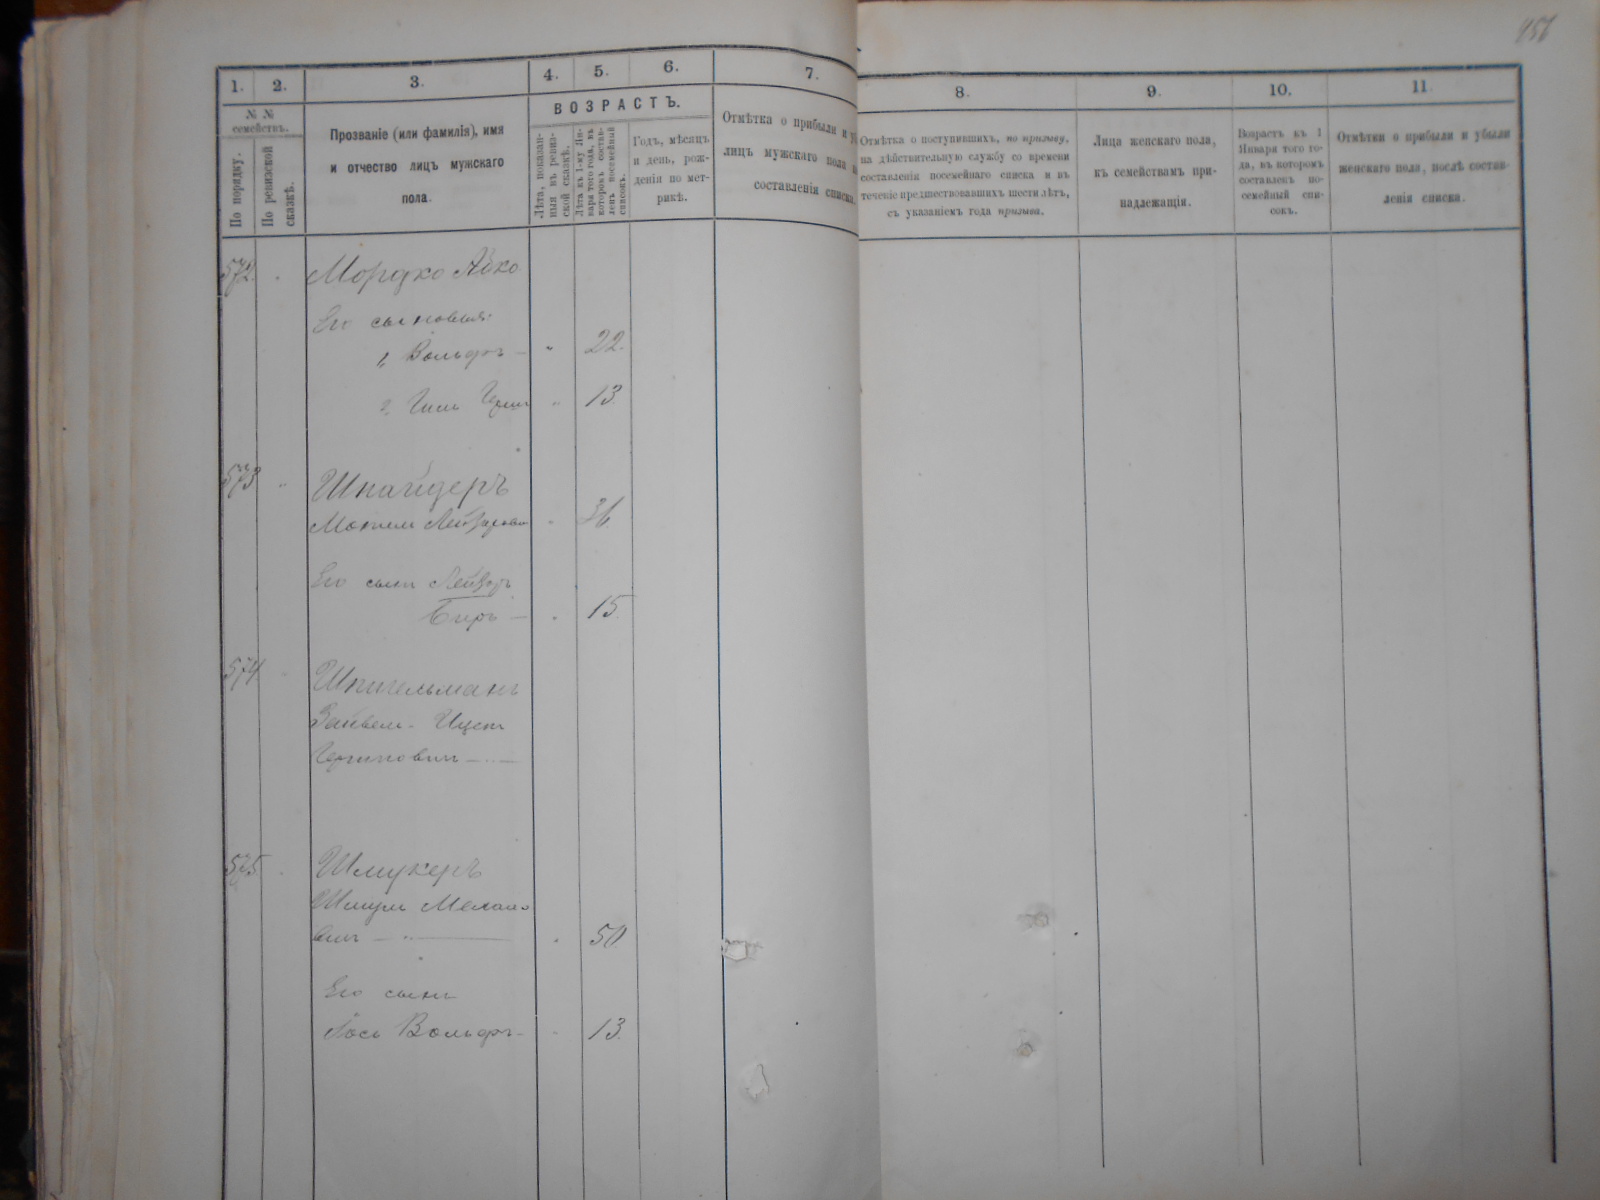 456
1.
2.
3.
4.
5.
6.
7.
8.
9.
10.
11.
№ №
семействъ.
По порядку.
По ревизской
сказкѣ.
Прозваніе (или фамилія), имя
и отчество лицъ мужскаго
пола.
ВОЗРАСТЪ.
Лѣта, показан-
ныя въ ревиз-
ской сказкѣ.
Лѣта къ 1-му Ян-
варя того года, въ
которомъ состав-
ленъ посемейный
списокъ.
Годъ, мѣсяцъ
и день, рож-
денія по мет-
рикѣ.
Отмѣтка о прибыли и
лицъ мужскаго пола
составленія списка.
Отмѣтка о поступившихъ, по призыву,
на дѣйствительную службу со времени
составленія посемейнаго списка и въ
теченіе предшествовавшихъ шести лѣтъ,
съ указаніемъ года призыва.
Лица женскаго пола,
къ семействамъ при-
надлежащія.
Возрастъ къ 1
Января того го-
да, въ которомъ
составленъ по-
семейный спи-
сокъ.
Отмѣтки о прибыли и убыли
женскаго пола, послѣ состав-
ленія списка.
572. Мордко
Его сыновья:
1, Вольфъ — 22.
2, 13.
573 Шнайдеръ
36.
Его сынъ Лейзоръ
Беръ — 15.
574. Шпигельманъ
Зайвель-Ицекъ
575. Шмукеръ
Шмуль
вичъ — 50.
Его сынъ
Іось Вольфъ — 13.